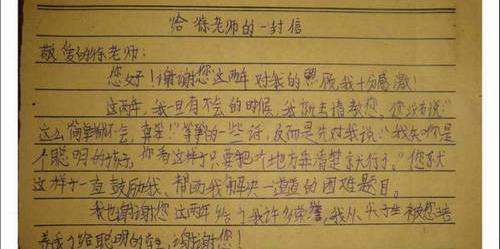 给徐老师的一封信
敬爱的徐老师:
您好!谢谢您这两年对我的照顾,我十分感激!
这两年,我一旦有不会的时候,我就去请教您。您没有说:“
这么简单都不会,真笨!”等等的一些话,反而是先对我说:“我知你是
个聪明的孩子,你看这样子只要把个地方弄清楚就行了。”您就
这样子一直鼓励我、帮助我解决一道道的困难题目。
我也谢谢您这两年给了我许多荣誉,我从 被您培
养成了给聪明的 ,谢谢您!